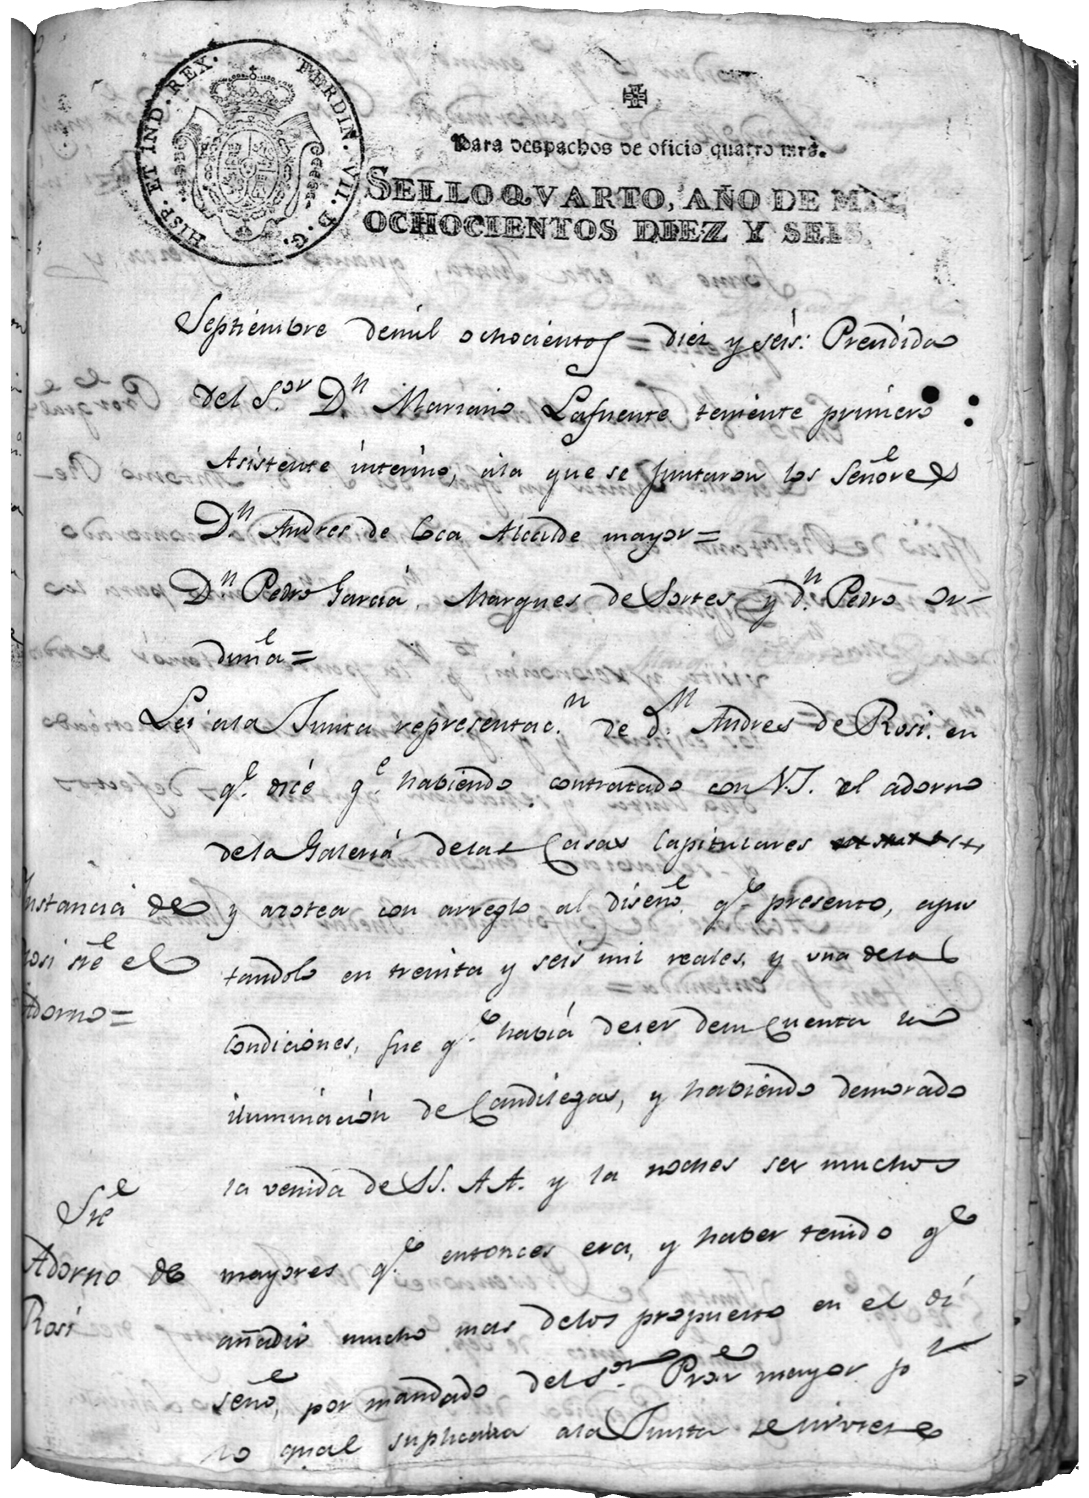 HISP. ET IND. REX. FERDIN. VII. D. G.
Para despachos de oficio quatro mrs.
SELLO QVARTO, AÑO DE MIL
OCHOCIENTOS DIEZ Y SEIS.
Septiembre demil ochocientos = diez y seis: Precidida
del S.or D.n Mariano Lafuente teniente primero
Asistente interino, ala que se juntaron los Señores
D.n Andres de Coca Alcalde mayor =
D.n Pedro Garcia, Marques de Sortes, y d.n Pedro Or-
duña =
Lei ala Junta representac.n de d.n Andres de Rosi. en
q.e dice q.e habiendo contratado con V.S. el adorno
dela Galeria delas Casas Capitulares
y azotea con arreglo al diseño q.e presento, ajus
tandolo en treinta y seis mil reales, y una delas
condiciones, fue q.e habia deser demi Cuenta la
iluminacion de Candilegas, y habiendo demorado
la venida de SS. A A. y la noches ser muchos
mayores q.e entonces era, y haber tenido q.e
añadir mucho mas delos propuesto en el di
seño, por mandado del S.or Pror mayor p.r
lo qual suplicaba ala Junta se sirviese
Instancia de
Rosi sre el
Adorno =
Sre
Adorno de
Rosi